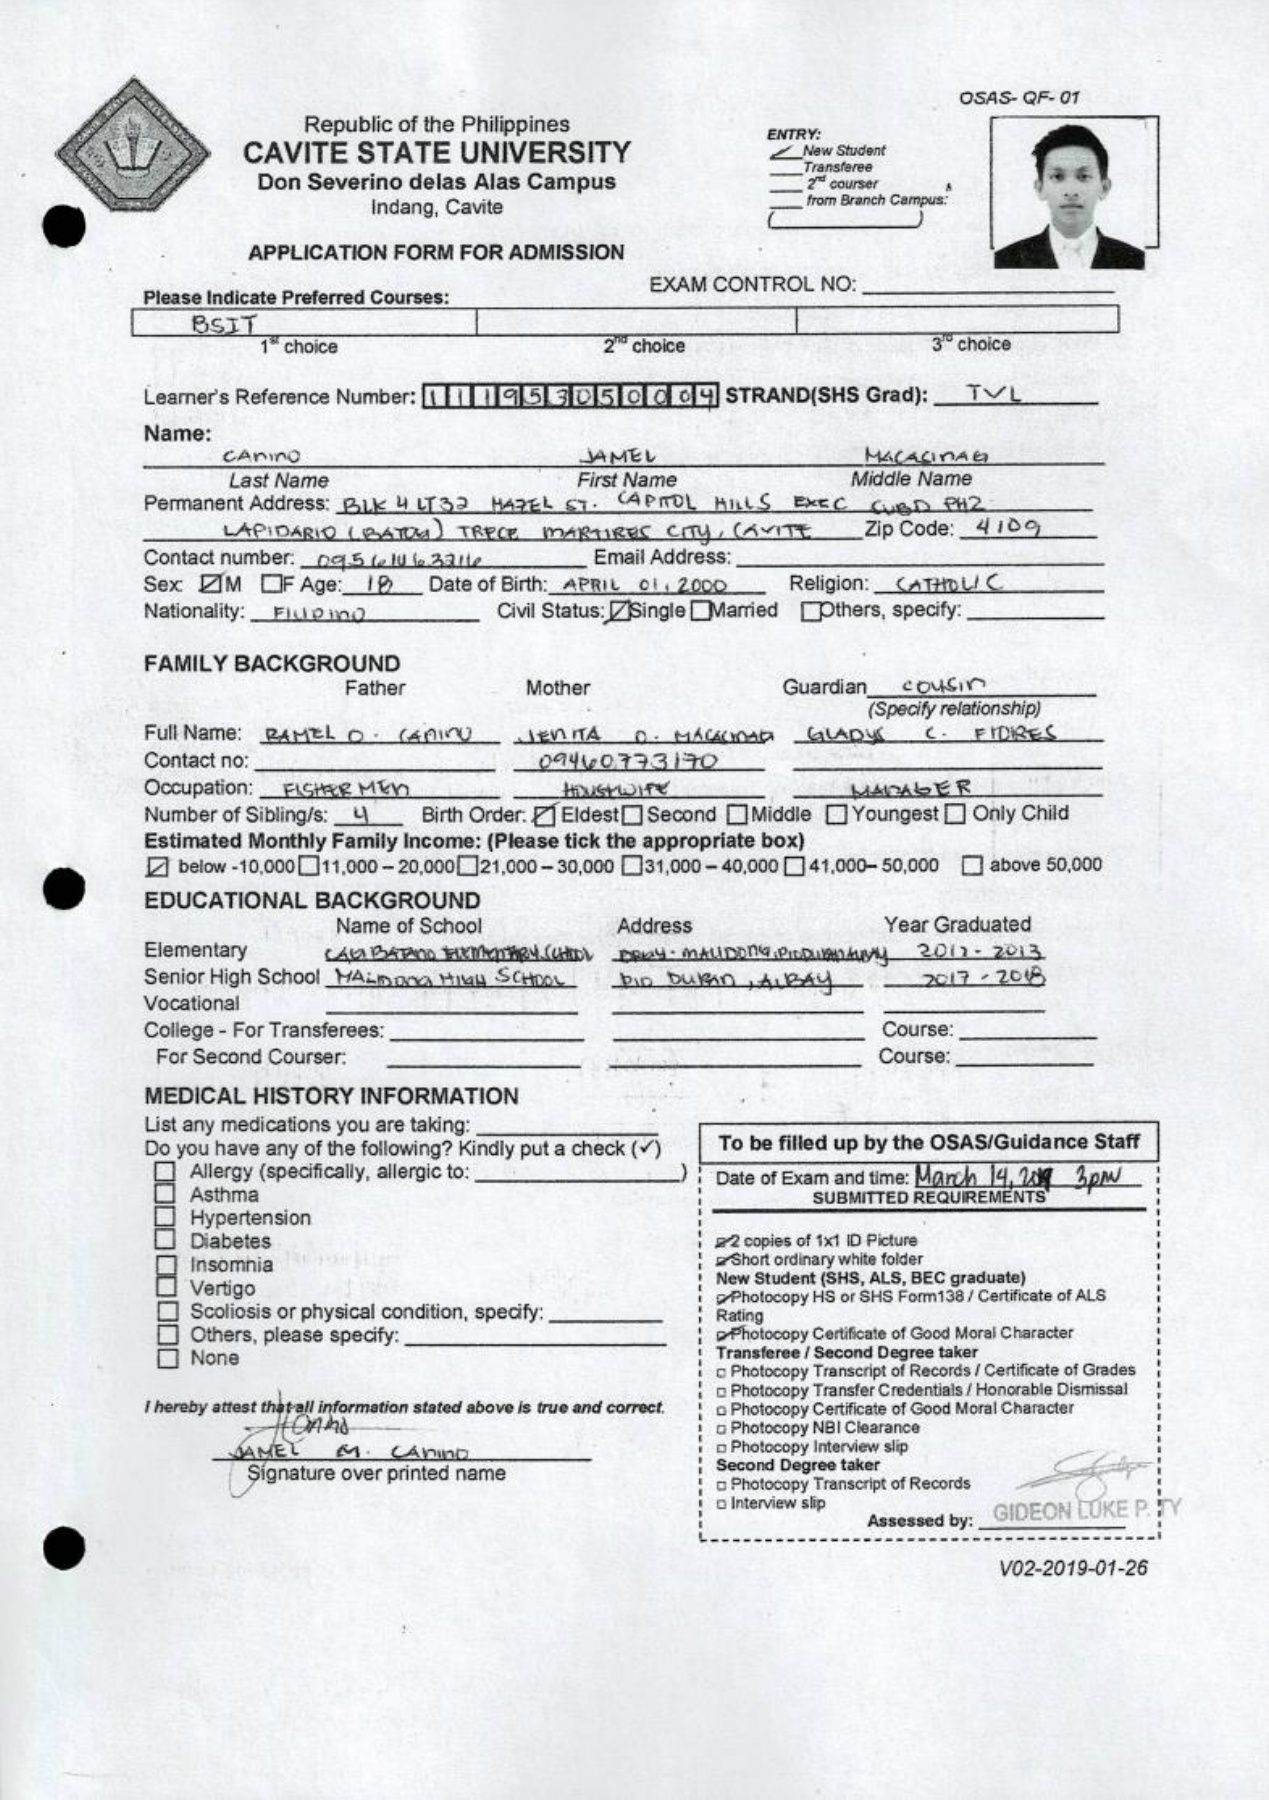 OSAS- QF- 01
Republic of the Philippines
CAVITE STATE UNIVERSITY
Don Severino delas Alas Campus
Indang, Cavite
ENTRY:
New Student
Transferee
2nd courser
from Branch Campus:
APPLICATION FORM FOR ADMISSION
EXAM CONTROL NO:
Please Indicate Preferred Courses:
BSIT
1st choice 2nd choice 3rd choice
Learner's Reference Number: 111953050004 STRAND(SHS Grad): TVL
Name:
CANINO JAMEL MACACINAG
Last Name First Name Middle Name
Permanent Address: BLK 4 LT32 HAZEL ST. CAPITOL HILLS EXEC SUBD PH2
LAPIDARIO (BATOG) TRECE MARTIRES CITY, CAVITE Zip Code: 4109
Contact number: Email Address:
Sex: M F Age: 18 Date of Birth: APRIL 01, 2000 Religion: CATHOLIC
Nationality: FILIPINO Civil Status: Single Married Others, specify:
FAMILY BACKGROUND
Father Mother Guardian COUSIN
(Specify relationship)
Full Name: RAMEL O. CANINO JENITA D. MACACINAG GLADYS C. FIDRES
Contact no: 09460773170
Occupation: FISHERMEN HOUSEWIFE MANAGER
Number of Sibling/s: 4 Birth Order: Eldest Second Middle Youngest Only Child
Estimated Monthly Family Income: (Please tick the appropriate box)
below -10,000 11,000 – 20,000 21,000 – 30,000 31,000 – 40,000 41,000– 50,000 above 50,000
EDUCATIONAL BACKGROUND
Name of School Address Year Graduated
Elementary ELEMENTARY SCHOOL 2012 - 2013
Senior High School MALIDONG HIGH SCHOOL PIO DURAN, ALBAY 2017 - 2018
Vocational
College - For Transferees: Course:
For Second Courser: Course:
MEDICAL HISTORY INFORMATION
List any medications you are taking:
Do you have any of the following? Kindly put a check (✓)
Allergy (specifically, allergic to: )
Asthma
Hypertension
Diabetes
Insomnia
Vertigo
Scoliosis or physical condition, specify:
Others, please specify:
None
I hereby attest that all information stated above is true and correct.
JAMEL M. CANINO
Signature over printed name
To be filled up by the OSAS/Guidance Staff
Date of Exam and time: March 14, 2019 3pm
SUBMITTED REQUIREMENTS
2 copies of 1x1 ID Picture
Short ordinary white folder
New Student (SHS, ALS, BEC graduate)
Photocopy HS or SHS Form138 / Certificate of ALS
Rating
Photocopy Certificate of Good Moral Character
Transferee / Second Degree taker
Photocopy Transcript of Records / Certificate of Grades
Photocopy Transfer Credentials / Honorable Dismissal
Photocopy Certificate of Good Moral Character
Photocopy NBI Clearance
Photocopy Interview slip
Second Degree taker
Photocopy Transcript of Records
Interview slip
Assessed by: GIDEON LUKE P. TY
V02-2019-01-26